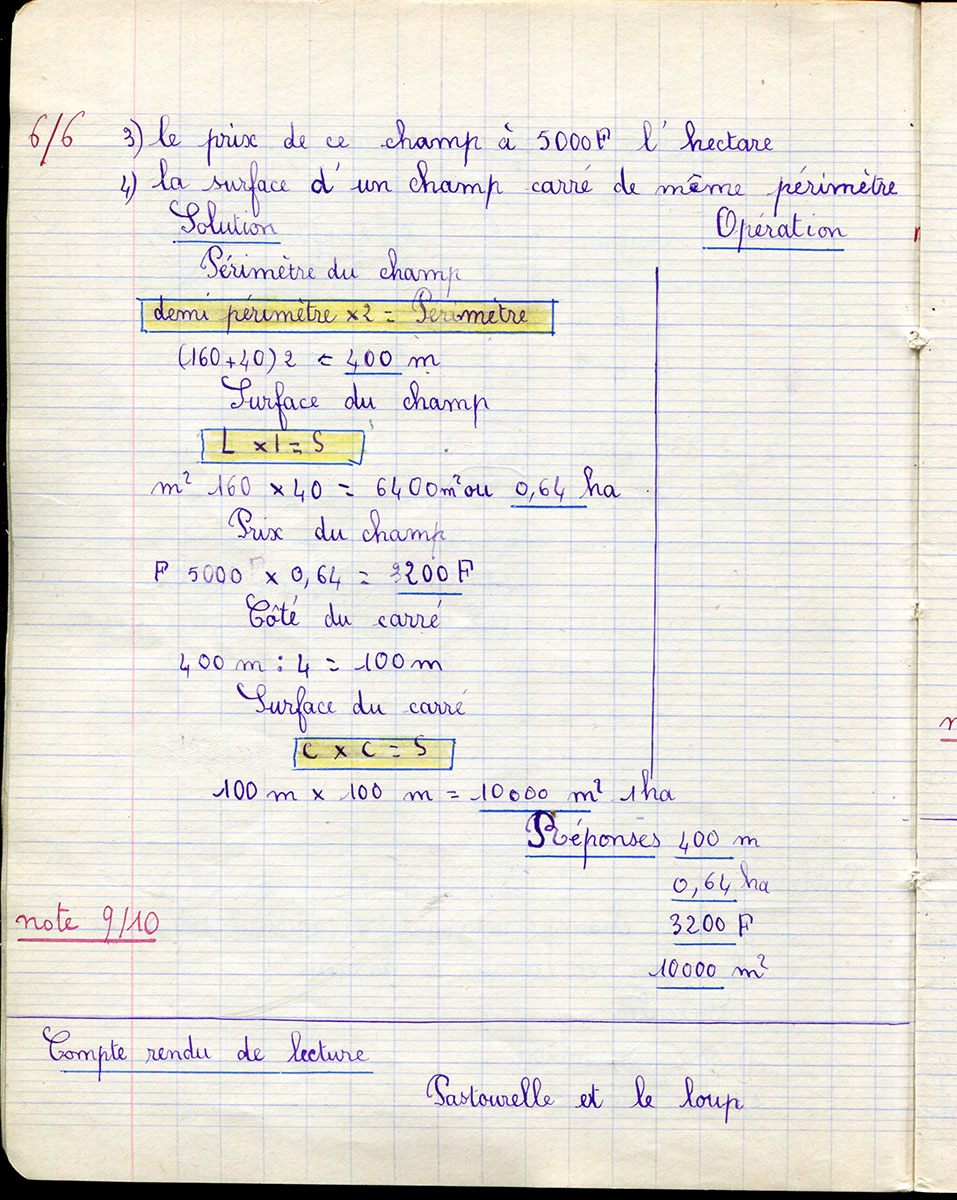 6/6 3) le prix de ce champ à 5000F l'hectare
4) la surface d'un champ carré de même périmètre
Solution Opération
Périmètre du champ
demi périmètre ×2 = Périmètre
(160+40) 2 = 400 m
Surface du champ
L × l = S
m² 160 × 40 = 6400m² ou 0,64 ha
Prix du champ
F 5000 × 0,64 = 3200 F
Côté du carré
400 m : 4 = 100 m
Surface du carré
C × C = S
100 m × 100 m = 10000 m² 1ha
Réponses 400 m
0,64 ha
note 9/10 3200 F
10000 m²
Compte rendu de lecture
Pastourelle et le loup